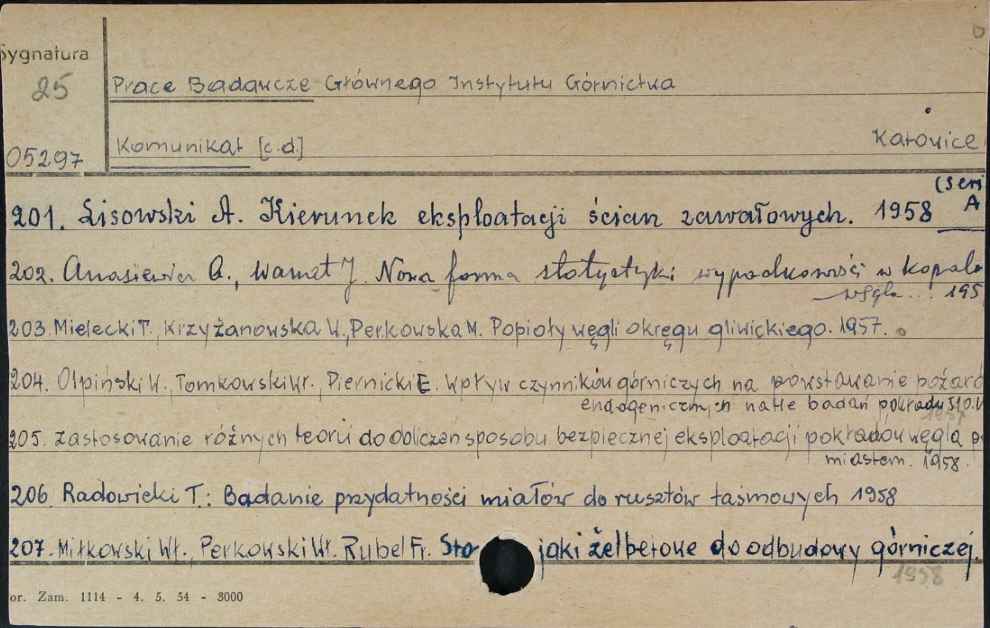 Sygnatura
25
Prace Badawcze Głównego Instytutu Górnictwa
Komunikat [c.d.] Katowice
05297
(seri
201. Lisowski A. Kierunek eksploatacji ścian zawałowych. 1958 A
202. Anasiewicz A., Wamet J. Nowa forma statystyki wypadkowości w kopaln
węgla... 195
203. Mielecki T. Krzyżanowska W., Perkowska M. Popioły węgli okręgu gliwickiego. 1957.
204. Olpiński W., Tomkowski Wr., Piernicki E. Wpływ czynników górniczych na powstawanie pożaró
endogenicznych na tle badań pokładu 510.
205. Zastosowanie różnych teorii do obliczeń sposobu bezpiecznej eksploatacji pokładów węgla p
miastem. 1958.
206. Radowicki T.: Badanie przydatności miałów do rusztów taśmowych 1958
207. Miłkowski Wł., Perkowski Wł. Rubel Fr. Sto jaki żelbetowe do odbudowy górniczej.
1958
or. Zam. 1114 - 4. 5. 54 - 3000